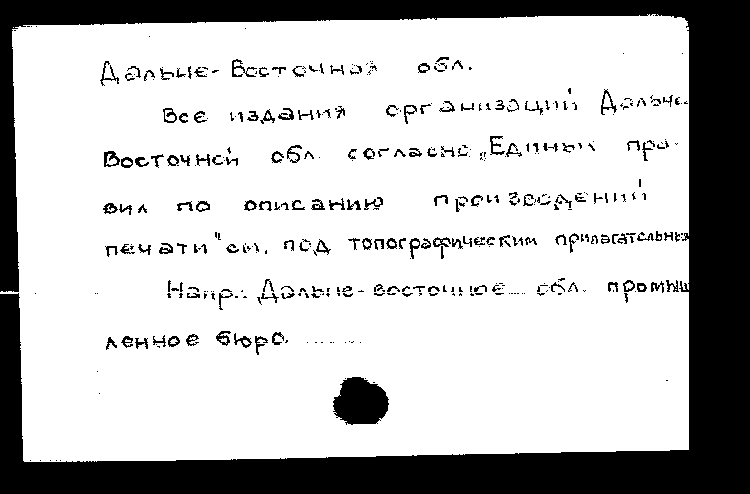 Дальне-Восточная обл.
Все издания организаций Дальне-
Восточной обл. согласно „Единых пра-
вил по описанию произведений
печати" см. под топографическим прилагательным
Напр.: Дальне-восточное обл. промыш
ленное бюро.